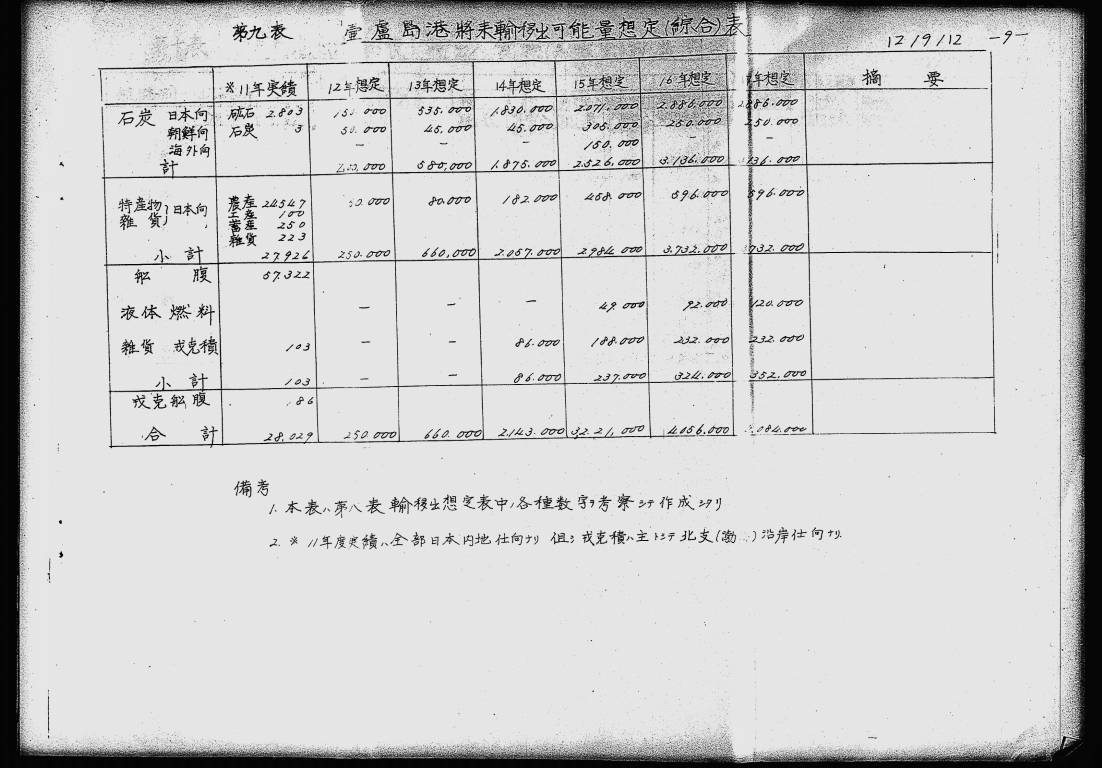 第九表 壷盧島港將来輸移出可能量想定(綜合)表 12/9/12 -9-
※11年実績 12年想定 13年想定 14年想定 15年想定 16年想定 年想定 摘要
石炭 日本向 砿石 2.803 150.000 535.000 1.830.000 2.071.000 2.886.000 886.000
朝鮮向 石炭 3 50.000 45.000 45.000 305.000 250.000 250.000
海外向 - - - 150.000 - -
計 000 580,000 1.875.000 2.526.000 3.136.000 136.000
特産物 雑貨 }日本向 農産 24547 50.000 80.000 182.000 458.000 596.000 596.000
工産 100
蓄産 250
雑貨 223
小計 27926 250.000 660,000 2.057.000 2984.000 3.732.000 732.000
船腹 57.322
液体燃料 - - - 49.000 92.000 120.000
雑貨 戎克積 103 - - 86.000 188.000 232.000 232.000
小計 103 - - 86.000 237.000 324.000 352.000
戎克船腹 86
合計 28.029 250.000 660.000 2.143.000 32.21,000 4.056.000 084.000
備考
1. 本表ハ第八表輸移出想定表中ノ各種数字ヲ考察シテ作成シタリ
2. ※ 11年度実績ハ全部日本内地仕向ナリ 但シ戎克積ハ主トシテ北支( )沿岸仕向ナリ.